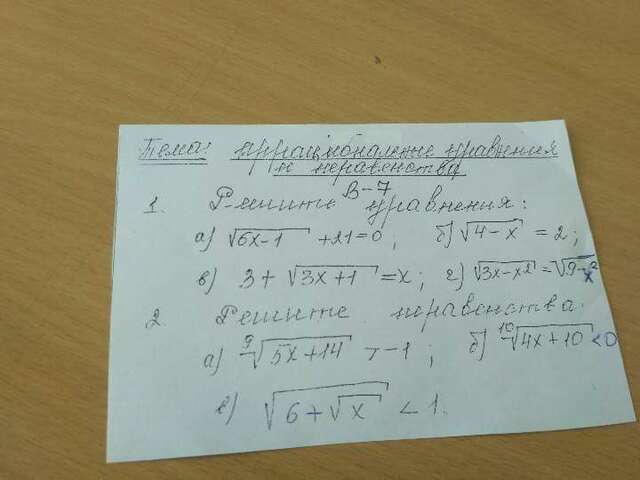 Тема: Иррациональные уравнения
и неравенства
В-7
1. Решить уравнения:
а) √6x-1 +21=0; б) √4-x = 2;
в) 3+ √3x+1 =x; г) √3x-x² =√9-x²
2 Решите неравенства.
а) ⁹√5x+14 >-1; б) ¹⁰√4x+10 <0
е) √6+√x < 1.